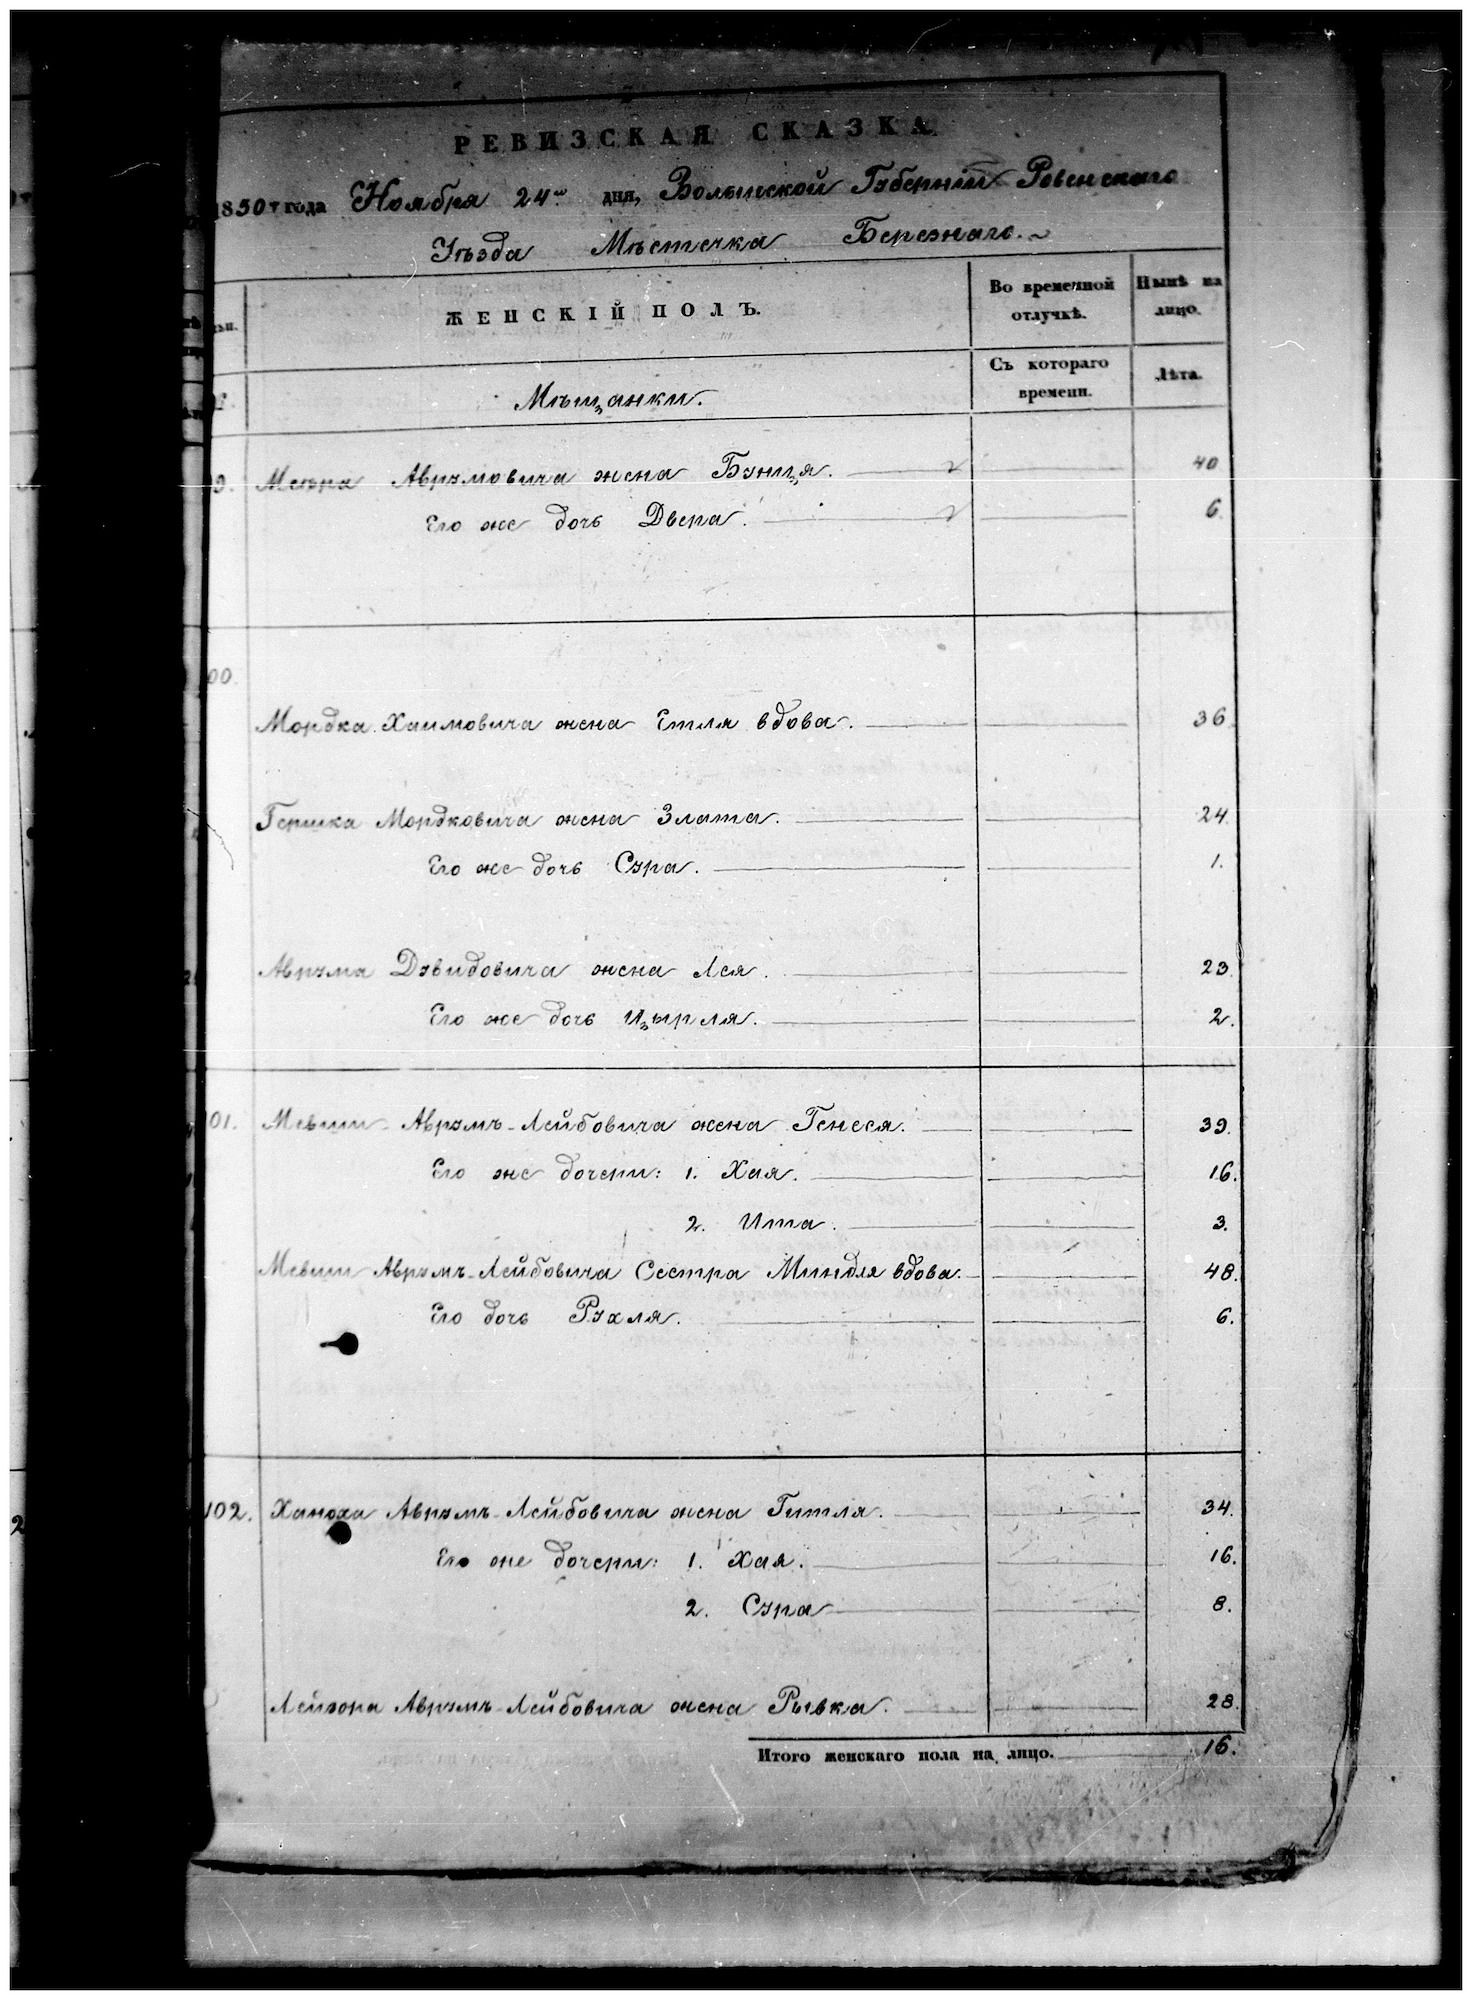 РЕВИЗСКАЯ СКАЗКА
1850 года Ноября 24 дня, Волынской Губерніи Ровенскаго
Уѣзда Мѣстечка Березнаго.
ЖЕНСКІЙ ПОЛЪ.
Во временной отлучкѣ.
Нынѣ на лицо.
Мѣщанки.
Съ котораго времени.
Лѣта.
9. Меера Аврумовича жена Бунця. 40
Его же дочь Двера. 6.
00.
Мордка Хаимовича жена Етля вдова. 36.
Гершка Мордковича жена Злата. 24.
Его же дочь Сура. 1.
Аврума Дувидовича жена Лея. 23.
Его же дочь Цырля. 2.
01. Мевши Аврумъ-Лейбовича жена Генеся. 39.
Его же дочери: 1. Хая. 16.
2. Ита. 3.
Мевши Аврумъ-Лейбовича Сестра Миндля вдова. 48.
Его дочь Рухля. 6.
102. Ханоха Аврумъ-Лейбовича жена Гитля. 34.
Его же дочери: 1. Хая. 16.
2. Сура 8.
Лейзора Аврумъ-Лейбовича жена Рывка. 28.
Итого женскаго пола на лицо. 16.